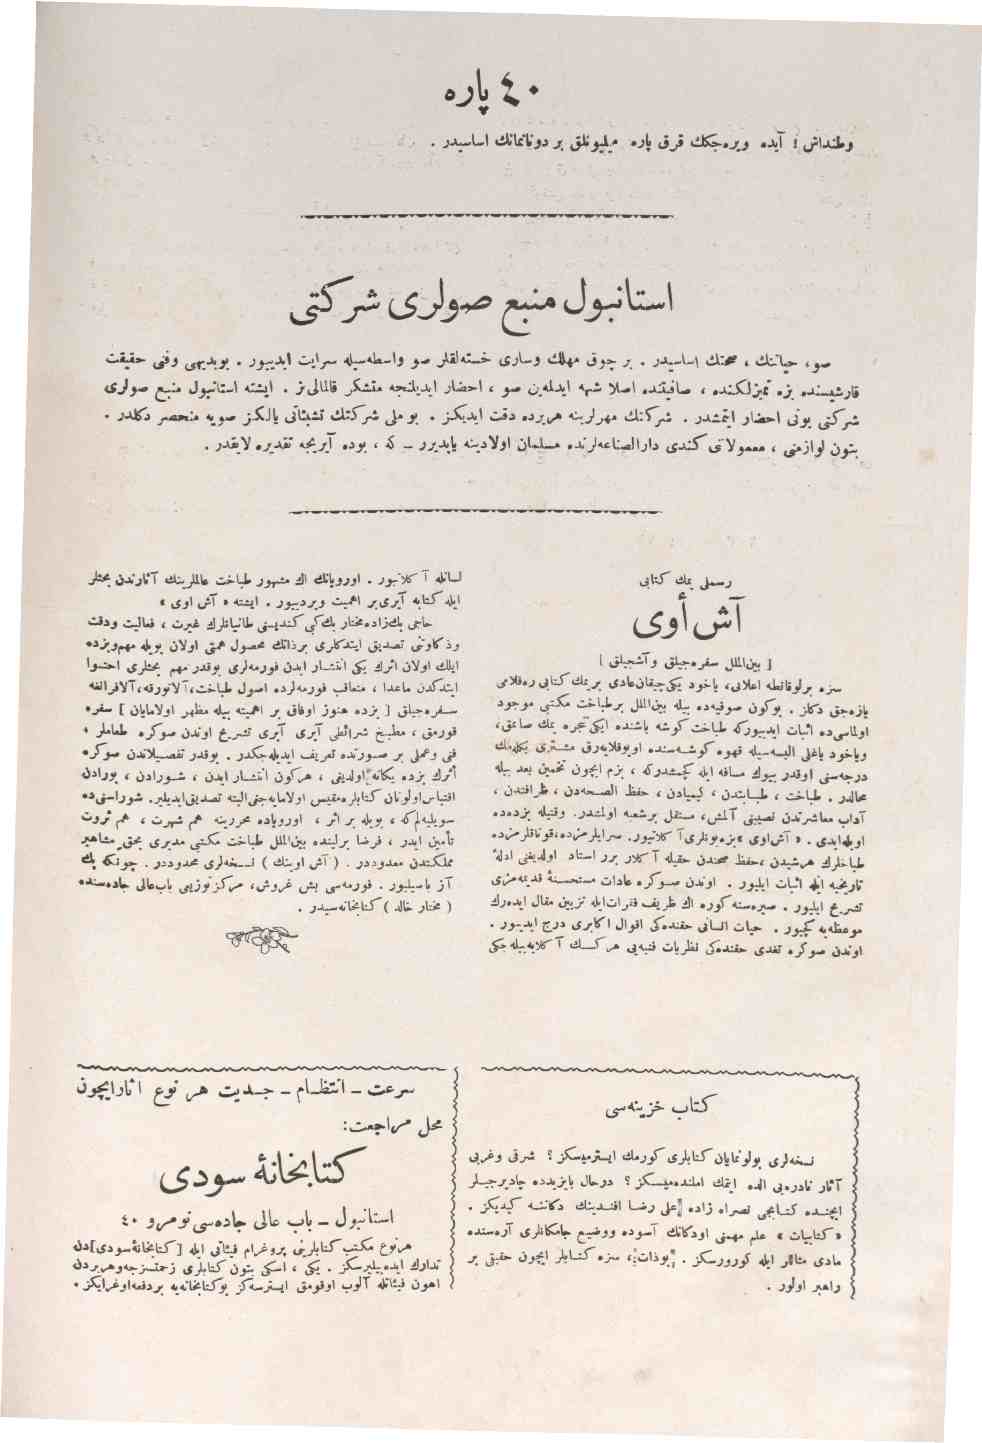 ٤٠ پاره
وطنداش! آیده ویره‌جكك قرق پاره میلیونلق بر دونانمانك اساسیدر .
استانبول منبع صولری شركتی
صو، حیاتنك ، صحتك اساسیدر . بر چوق مهلك وساری خسته‌لقلر صو واسطه‌سیله سرایت ایدییور . بوبدیهی وفنی حقیقت
قارشیسنده بزه تمیزلكنده ، صافیتنده اصلا شبهه ایدلمه‌ین صو ، احضار ایدیلنجه متشكر قالمالی‌یز . ایشته استانبول منبع صولری
شركتی بونی احضار ایتمشدر . شركتك مهرلرینه هریرده دقت ایدیكز . بو ملی شركتك تشبثاتی یالكز صویه منحصر دكلدر .
بتون لوازمنی ، معمولاتی كندی دارالصناعه‌لرنده مسلمان اولادینه یاپدیرر ــ كه ، بوده آیریجه تقدیره لایقدر .
رسملی یمك كتابی
آش أوی
[ بین‌الملل سفره‌جیلق وآشجیلق ]
سزه برلوقانطه اعلانی، یاخود یكی‌چیقان‌عادی بریمك كتابی ره‌قلامی
یازه‌جق دكلز . بوكون صوفیه‌ده بیله بین‌الملل برطباخت مكتبی موجود
اولماسی‌ده اثبات ایدییوركه طباخت كوشه باشنده ایكی تنجره یمك صاتمق،
ویاخود یاغلی البسه‌سیله قهوه كوشه‌سنده اویوقلایه‌رق مشتری بكله‌مك
درجه‌سنی اوقدر بیوك مسافه ایله كچمشدركه ، بزم ایچون تخمین بعد بیله
محالدر . طباخت ، طبابتدن ، كیمیادن ، حفظ الصحه‌دن ، ظرافتدن ،
آداب معاشرتدن نصیبنی آلمش، مستقل برشعبه اولمشدر. وقتیله بزده‌ده
اویله‌ایدی . « آش‌اوی »بزه‌بونلری‌آ كلاتیور. سرایلرمزده،قوناقلرمزده
طباخلرك هرشیدن ،حفظ صحتدن حقیله آ كلار برر استاد اولدیغنی ادلهٔ
تاریخیه ایله اثبات ایلیور . اوندن صوكره عادات مستحسنهٔ قدیمه‌مزی
تشریح ایلیور . صیره‌سنه كوره اك ظریف فقرات‌ایله تزیین مقال ایده‌رك
موعظه‌یه كچیور . حیات انسانی حقنده‌كی اقوال اكابری درج ایدییور .
اوندن صوكره تغدی حقنده‌كی نظریات فنیه‌یی هر كسك آ كلایه‌بیله جكی
لسانله آ كلاتیور . اوروپانك اك مشهور طباخت عالملرینك آثارندن بحثلر
ایله كتابه آیری‌بر اهمیت ویردییور . ایشته « آش اوی »
حاجی بك‌زاده‌مختار بك‌كبی كندیسنی طانیانلرك غیرت ، فعالیت ودقت
وذكاوتنی تصدیق ایتدكلری برذاتك محصول همتی اولان بویله مهم‌وبزده
ایلك اولان اثرك یكی انتشار ایدن فورمه‌لری بوقدر مهم بحثلری احتوا
ایتدكدن ماعدا ، متعاقب فورمه‌لرده اصول طباخت،آلاتورقه،آلافرانغه
سفره‌جیلق [ بزده هنوز اوفاق بر اهمیته بیله مظهر اولامایان ] سفره
قورمق ، مطبخ شرائطی آیری آیری تشریح اوندن صوكره طعاملر ،
فنی وعملی بر صورتده تعریف ایدیله‌جكدر . بوقدر تفصیلاتدن صوكره
أثرك بزده یكانه اولدیغی ، هركون انتشار ایدن ، شورادن ، بورادن
اقتباس اولونان كتابلره‌مقیس اولامایه‌جنی البته تصدیق‌ایدیلیر. شوراسنی‌ده
سویلیه‌لم‌كه ، بویله بر اثر ، اوروپاده محررینه هم شهرت ، هم ثروت
تأمین ایدر ، فرضا برلینده بین‌الملل طباخت مكتبی مدیری بحق مشاهیر
مملكتدن معدوددر . ( آش اوینك ) نسخه‌لری محدوددر . چونكه پك
آز باصیلیور . فورمه‌سی بش غروش، مركزتوزیعی باب‌عالی جاده‌سنده
( مختار خالد ) كتابخانه‌سیدر .
كتاب خزینه‌سی
نسخه‌لری بولونمایان كتابلری كورمك ایسترمیسكز ؟ شرقی وغربی
آثار نادره‌یی الده ایتمك املنده‌میسكز ؟ درحال بایزیدده چادیرجیلر
ایچنده كتابجی نصراه زاده علی رضا افندینك دكاننه كیدیكز .
« كتابیات » علم مهمنی اودكانك آسوده ووضیع جامكانلری آره‌سنده
مادی مثاللر ایله كورورسكز . بوذات، سزه كتابلر ایچون حقیقی بر
راهبر اولور .
سرعت ــ انتظام ــ جدیت هر نوع آثارایچون
محل مراجعت:
كتابخانهٔ سودی
استانبول ــ باب عالی جاده‌سی نومرو ٤٠
هرنوع مكتب كتابلرینی پروغرام فیئاتی ایله [كتابخانهٔ‌سودی]دن
تدارك ایده‌بیلیرسكز . یكی ، اسكی بتون كتابلری زحمتزجه‌وهربردن
اهون فیئاتله آلوب اوقومق ایسترسه‌كز بوكتابخانه‌یه بردفعه‌اوغرایكز .